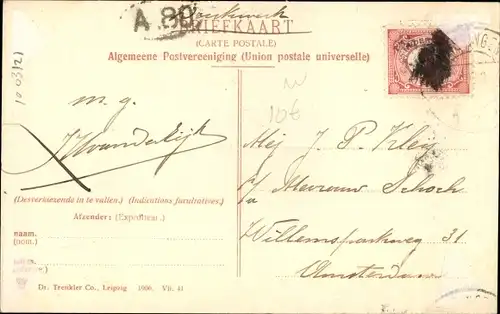 A. 80
BRIEFKAART
(CARTE POSTALE)
Algemeene Postvereeniging (Union postale universelle)
m. g.
(Desverkiezende in te vullen.) (Indications facultatives.)
Afzender: (Expéditeur.)
naam.
(nom.)
Dr. Trenkler Co., Leipzig 1906. Vlt. 41
Mej J. P. Kleij
p/a Mevrouw Schoch
Willemsparkweg 31
Amsterdam